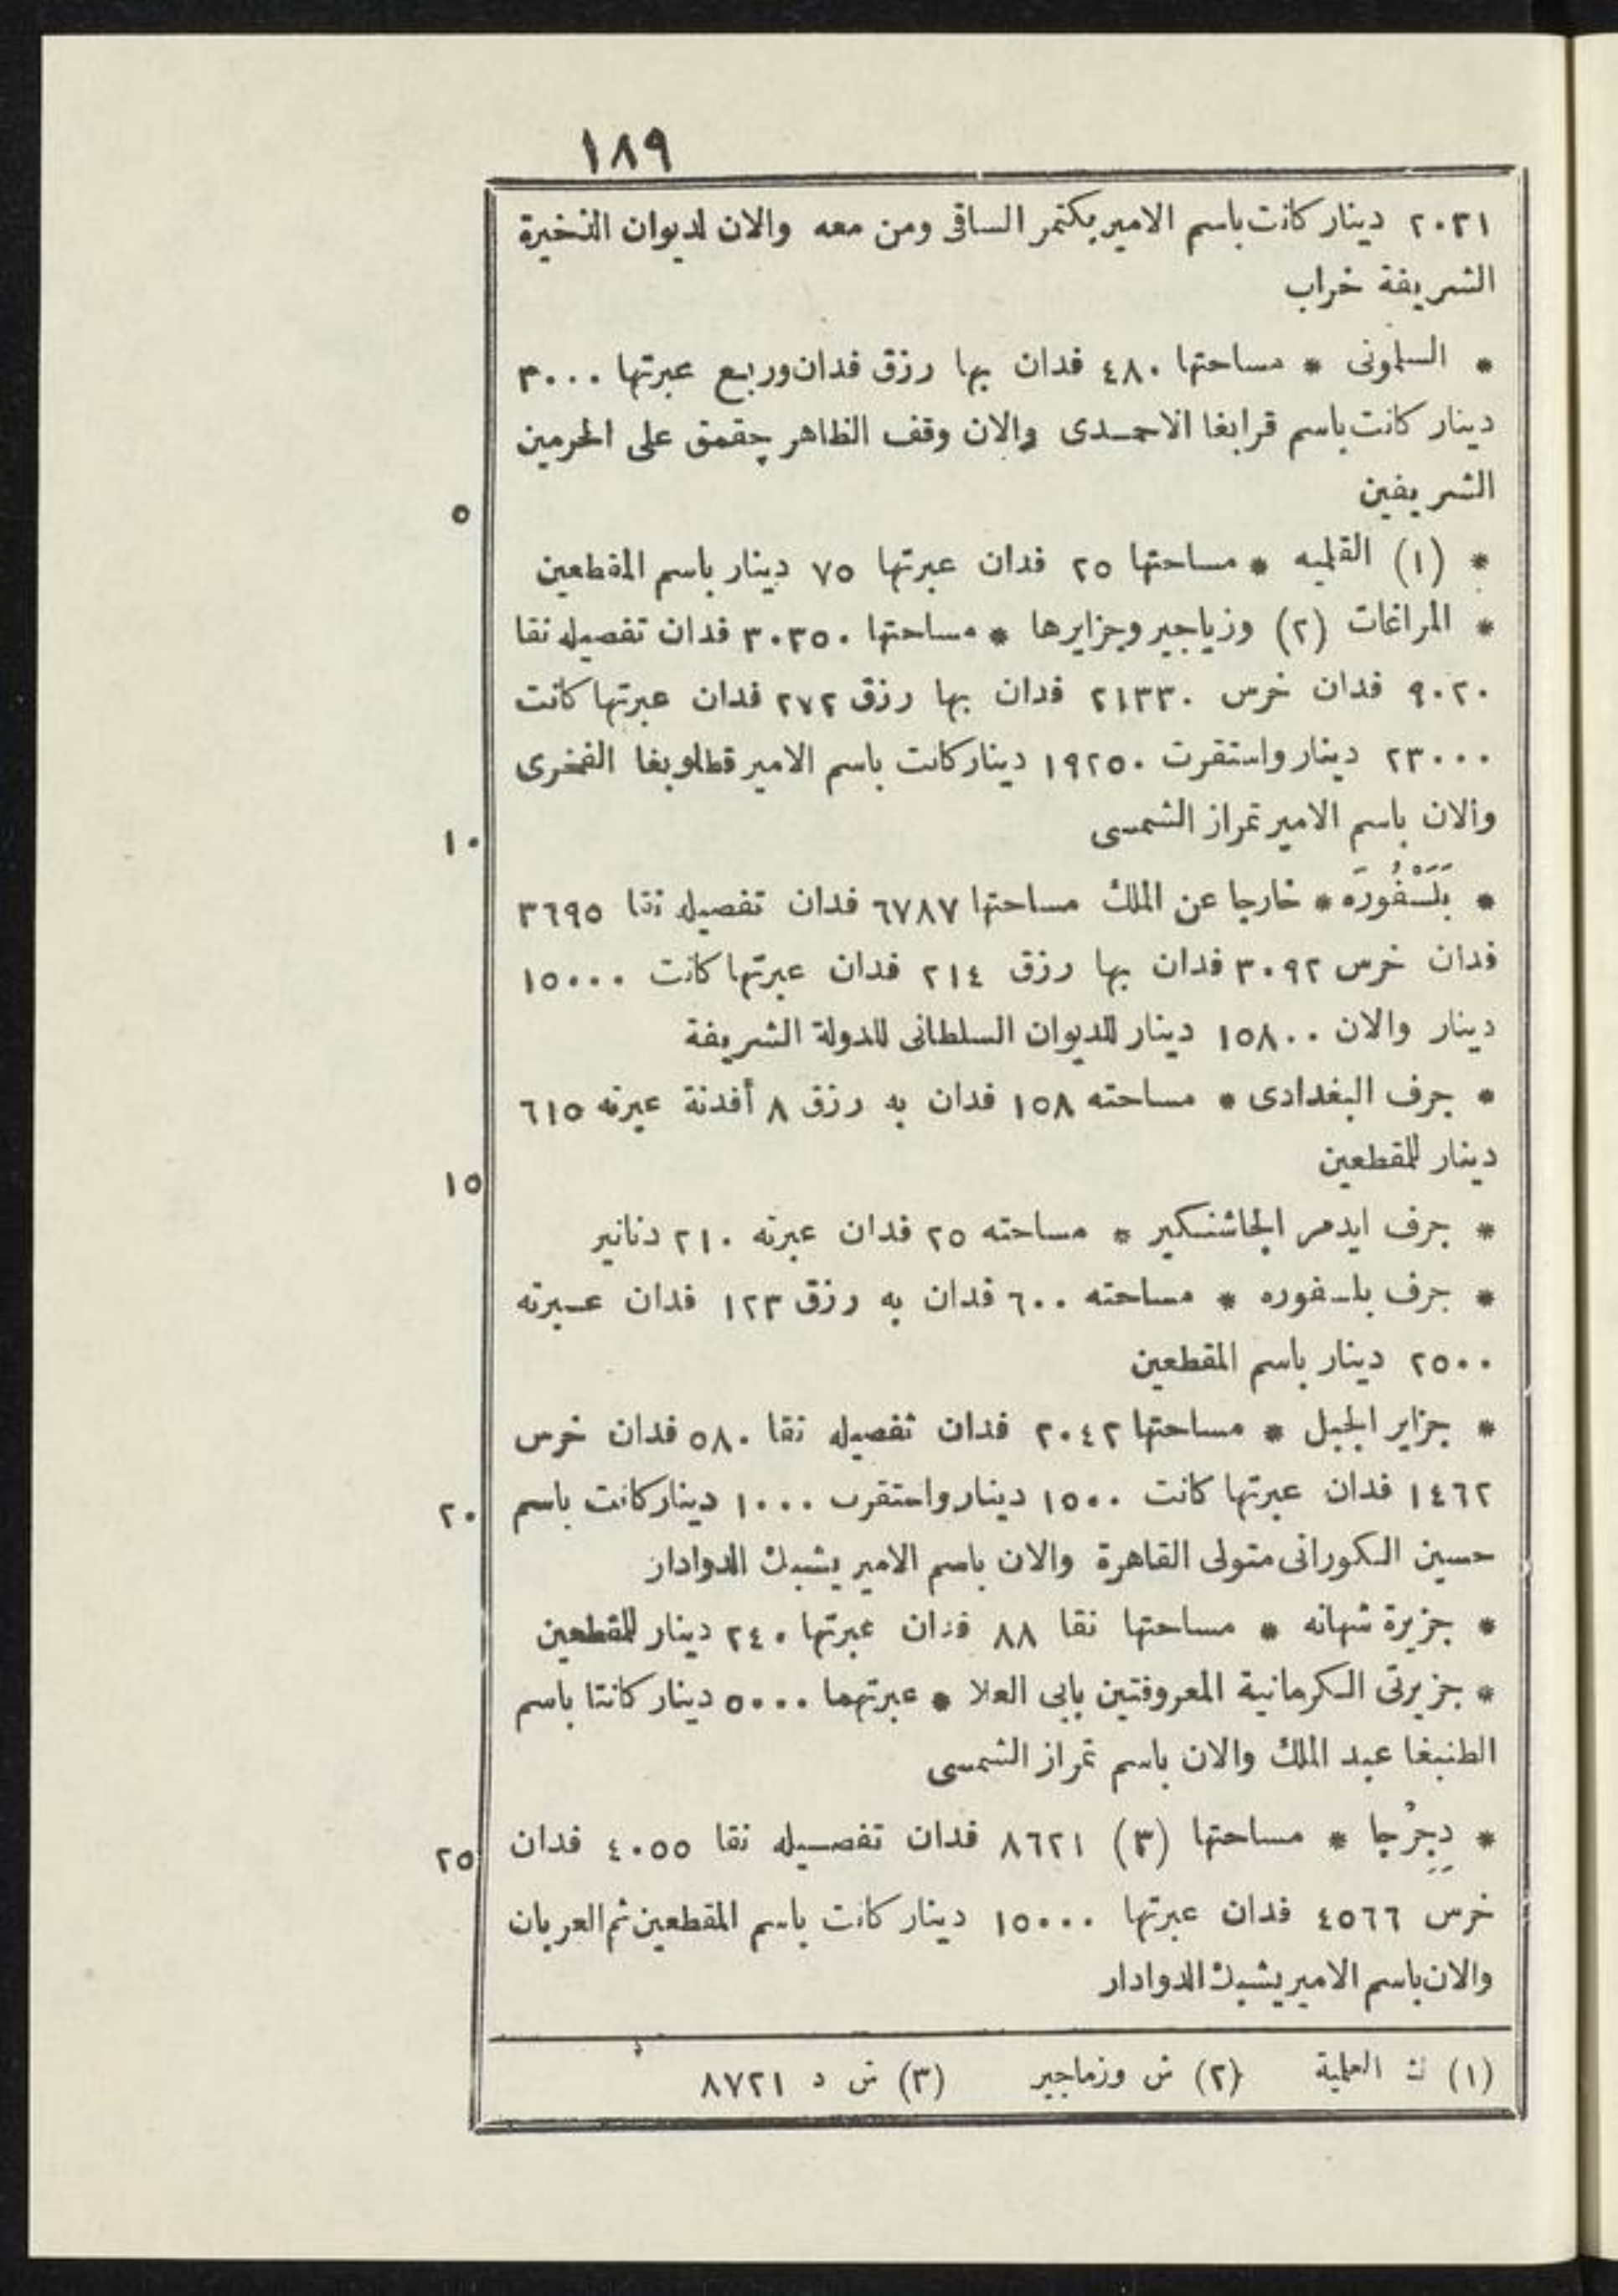 ١٨٩
٢٠٣١ دينار كانت باسم الامير بكتمر الساقى ومن معه والان لديوان الذخيرة
الشريفة خراب
* السلمونى * مساحتها ٤٨٠ فدان بها رزق فدان وربع عبرتها ٣٠٠٠
دينار كانت باسم قرابغا الاحمدى والان وقف الظاهر جقمق على الحرمين
الشريفين
٥
* (١) القلميه * مساحتها ٢٥ فدان عبرتها ٧٥ دينار باسم المقطعين
* المراغات (٢) وزياجير وجزايرها * مساحتها ٣٠٣٥٠ فدان تفصيله نقا
٩٠٢٠ فدان خرس ٢١٣٣٠ فدان بها رزق ٢٧٢ فدان عبرتها كانت
٢٣٠٠٠ دينار واستقرت ١٩٢٥٠ دينار كانت باسم الامير قطلوبغا الفخرى
والان باسم الامير تمراز الشمسى
١٠
* بَلَسْفُورَه * خارجا عن الملك مساحتها ٦٧٨٧ فدان تفصيله نقا ٣٦٩٥
فدان خرس ٣٠٩٢ فدان بها رزق ٢١٤ فدان عبرتها كانت ١٥٠٠٠
دينار والان ١٥٨٠٠ دينار للديوان السلطانى للدولة الشريفة
* جرف البغدادى * مساحته ١٥٨ فدان به رزق ٨ أفدنة عبرته ٦١٥
دينار للمقطعين
١٥
* جرف ايدمر الجاشنكير * مساحته ٢٥ فدان عبرته ٢١٠ دنانير
* جرف بلسفوره * مساحته ٦٠٠ فدان به رزق ١٢٣ فدان عبرته
٢٥٠٠ دينار باسم المقطعين
* جزاير الجبل * مساحتها ٢٠٤٢ فدان تفصيله نقا ٥٨٠ فدان خرس
١٤٦٢ فدان عبرتها كانت ١٥٠٠ دينار واستقرت ١٠٠٠ دينار كانت باسم
٢٠
حسين الكورانى متولى القاهرة والان باسم الامير يشبك الدوادار
* جزيرة شهانه * مساحتها نقا ٨٨ فدان عبرتها ٢٤٠ دينار للمقطعين
* جزيرتى الكرمانية المعروفتين بابى العلا * عبرتهما ٥٠٠٠ دينار كانتا باسم
الطنبغا عبد الملك والان باسم تمراز الشمسى
* دِجِرْجا * مساحتها (٣) ٨٦٢١ فدان تفصيله نقا ٤٠٥٥ فدان
٢٥
خرس ٤٥٦٦ فدان عبرتها ١٥٠٠٠ دينار كانت باسم المقطعين ثم العربان
والان باسم الامير يشبك الدوادار
(١) ث العلمية (٢) ش وزماجير (٣) ش د ٨٧٢١